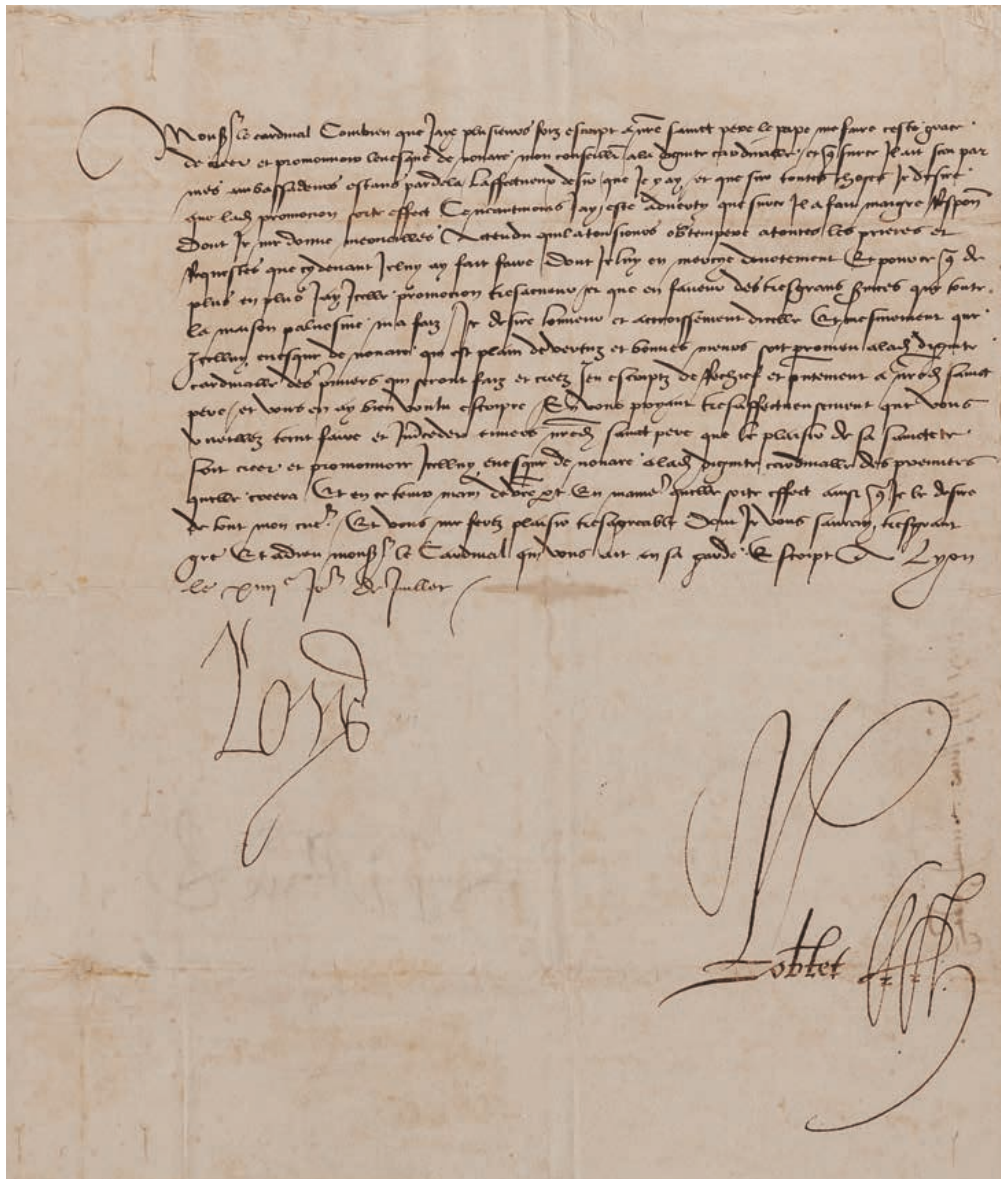 Mons^r le cardinal Combien que Jaye plusieurs foiz escript a n^re sainct pere le pape me faire ceste grace
de creer et promouvoir levesque de novare mon conseiller a la dignite cardinalle et q sur ce Il ait sceu par
mes ambassadeurs estans pardela Laffectueux desir que Je y ay et que sur toutes choses Je desire
que lad promocion sorte effect Ce neantmoins Jay este adverty que sur ce Il a fait maigre Respon
Dont Je me donne merveilles Actendu quil a tousiours obtempere a toutes les prieres et
Requestes que cy devant Je luy ay fait faire Dont Je luy en mercye devotement Et pource q de
plus en plus Jay Icelle promocion tresacueur et que en faveur des tresgrans services que toute
la maison palvesine ma faiz Je desire lonneur et accroissement dicelle Et mesmement que
Icelluy evesque de novare qui est plain de vertuz et bonnes meurs soit promeu a lad dignite
cardinalle des p^rmiers qui seront faiz et creez Jen escriptz de Rechief et p^rntement a n^red sainct
pere et vous en ay bien voulu escripre En vous priant tresaffectueusement que vous
vueillez tant faire et Interceder envers n^red sainct pere que le plaisir de sa sainctete
soit creer et promouvoir Icelluy evesque de novare a lad dignite cardinalle des premiers
quelle creera Et en ce tenir main de v^re p^t En maniere quelle sorte effect ainsi q Je le desire
de tout mon cueur Et vous me ferez plaisir tresagreable Dont Je vous sauray tresgrant
gre Et adieu mons^r le Cardinal qui vous ait en sa garde Escript A Lyon
le xiiii^e Jo^r de Juillet
Loys
Robertet